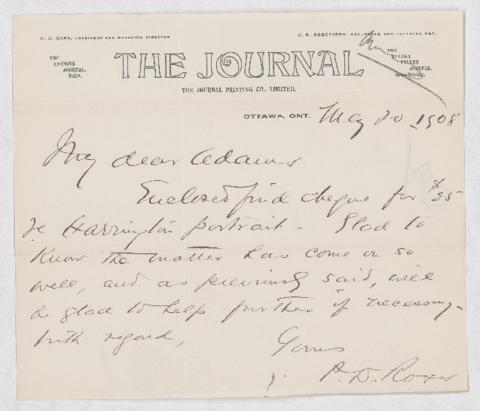 P. D. ROSS, PRESIDENT AND MANAGING DIRECTOR
THE EVENING JOURNAL, DAILY.
THE JOURNAL
THE OTTAWA VALLEY JOURNAL
THE JOURNAL PRINTING CO., LIMITED.
OTTAWA, ONT. May 20 1908
My dear Adams
Enclosed find cheque for $25
re Harrington portrait - Glad to
know the matter has come on so
well, and as previously said, will
be glad to help further if necessary -
With regard,
Yours
P. D. Ross